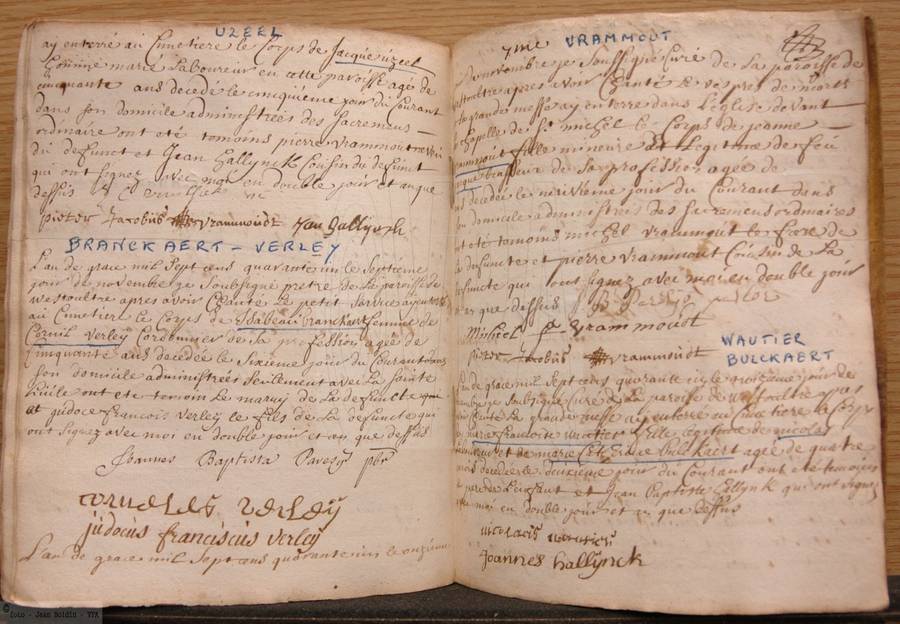 UZEEL
ay enterré au Cimetiere le Corps de Jacque uzeel
homme marié Laboureur en cette paroisse agé de
cinquante ans decedé le cinquieme jour du Courant
dans son domicile administrées des sacremens
ordinaire ont eté temoins pierre vrammout
du defunct et Jean hallynck Coisin du defunct
qui ont signez avec moi en double jour et an que
dessus
pieter Jacobus vrammoudt Jan hallynck
BRANCKAERT - VERLEY
L'an de grace mil Sept cens quarante un le Septieme
jour de novembre je Soubsigné pretre de La paroisse de
westoultre apres avoir Chanté Le petit Service ay enterré
au Cimetiere le Corps de Isabeau branckart femme de
Cornil verley Cordonnier de Sa profession agée de
Cinquante ans decedée le Sixieme jour du Courant dans
Son domicile administrées Seulement avec La Sainte
huile ont eté temoin Le mary de La defuncte
et judoce francois verley le fils de La defuncte qui
ont Signez avec moi en double jour et an que dessus
Joannes Baptista pbr
corneles verleij
judocus franciscus verleij
L'an de grace mil Sept cens quarante un le onzieme
7me VRAMMOUT
de novembre je Soussigné Curé de La paroisse de
westoultre apres avoir Chanté Les vespres de morts
La grande messe ay enterré dans L'église devant
La Chapelle de St michel le Corps de jeanne
vrammout fille mineure et Legitime de feu
jaque brasseur de Sa profession agée de
decedée le jour du Courant dans
Son domicile administrées des Sacremens ordinaires
ont eté temoins michel vrammout le frere de
La defuncte et pierre vrammout Cousin de La
defuncte qui ont signez avec moi en double jour
et an que dessus
Michiel vrammoudt
pieter Jacobus vrammoudt
WAUTIER
BULCKAERT
L'an de grace mil Sept cens quarante un le troisieme jour de
Soubsigné Curé de La paroisse de westoultre apres
avoir Chanté La grande messe ay enterré au Cimetiere le Corps
de marie francoise wautier fille legitime de nicolas
wautier et de marie Catherine bulckaert agée de quatre
mois decedée le deuxieme jour du Courant ont eté temoins
le pere de L'enfant et Jean Baptiste hallynk qui ont Signez
avec moi en double jour et an que dessus
nicolaeis wautiers
Joannes hallijnck
© foto - Jean Boldin - VVF